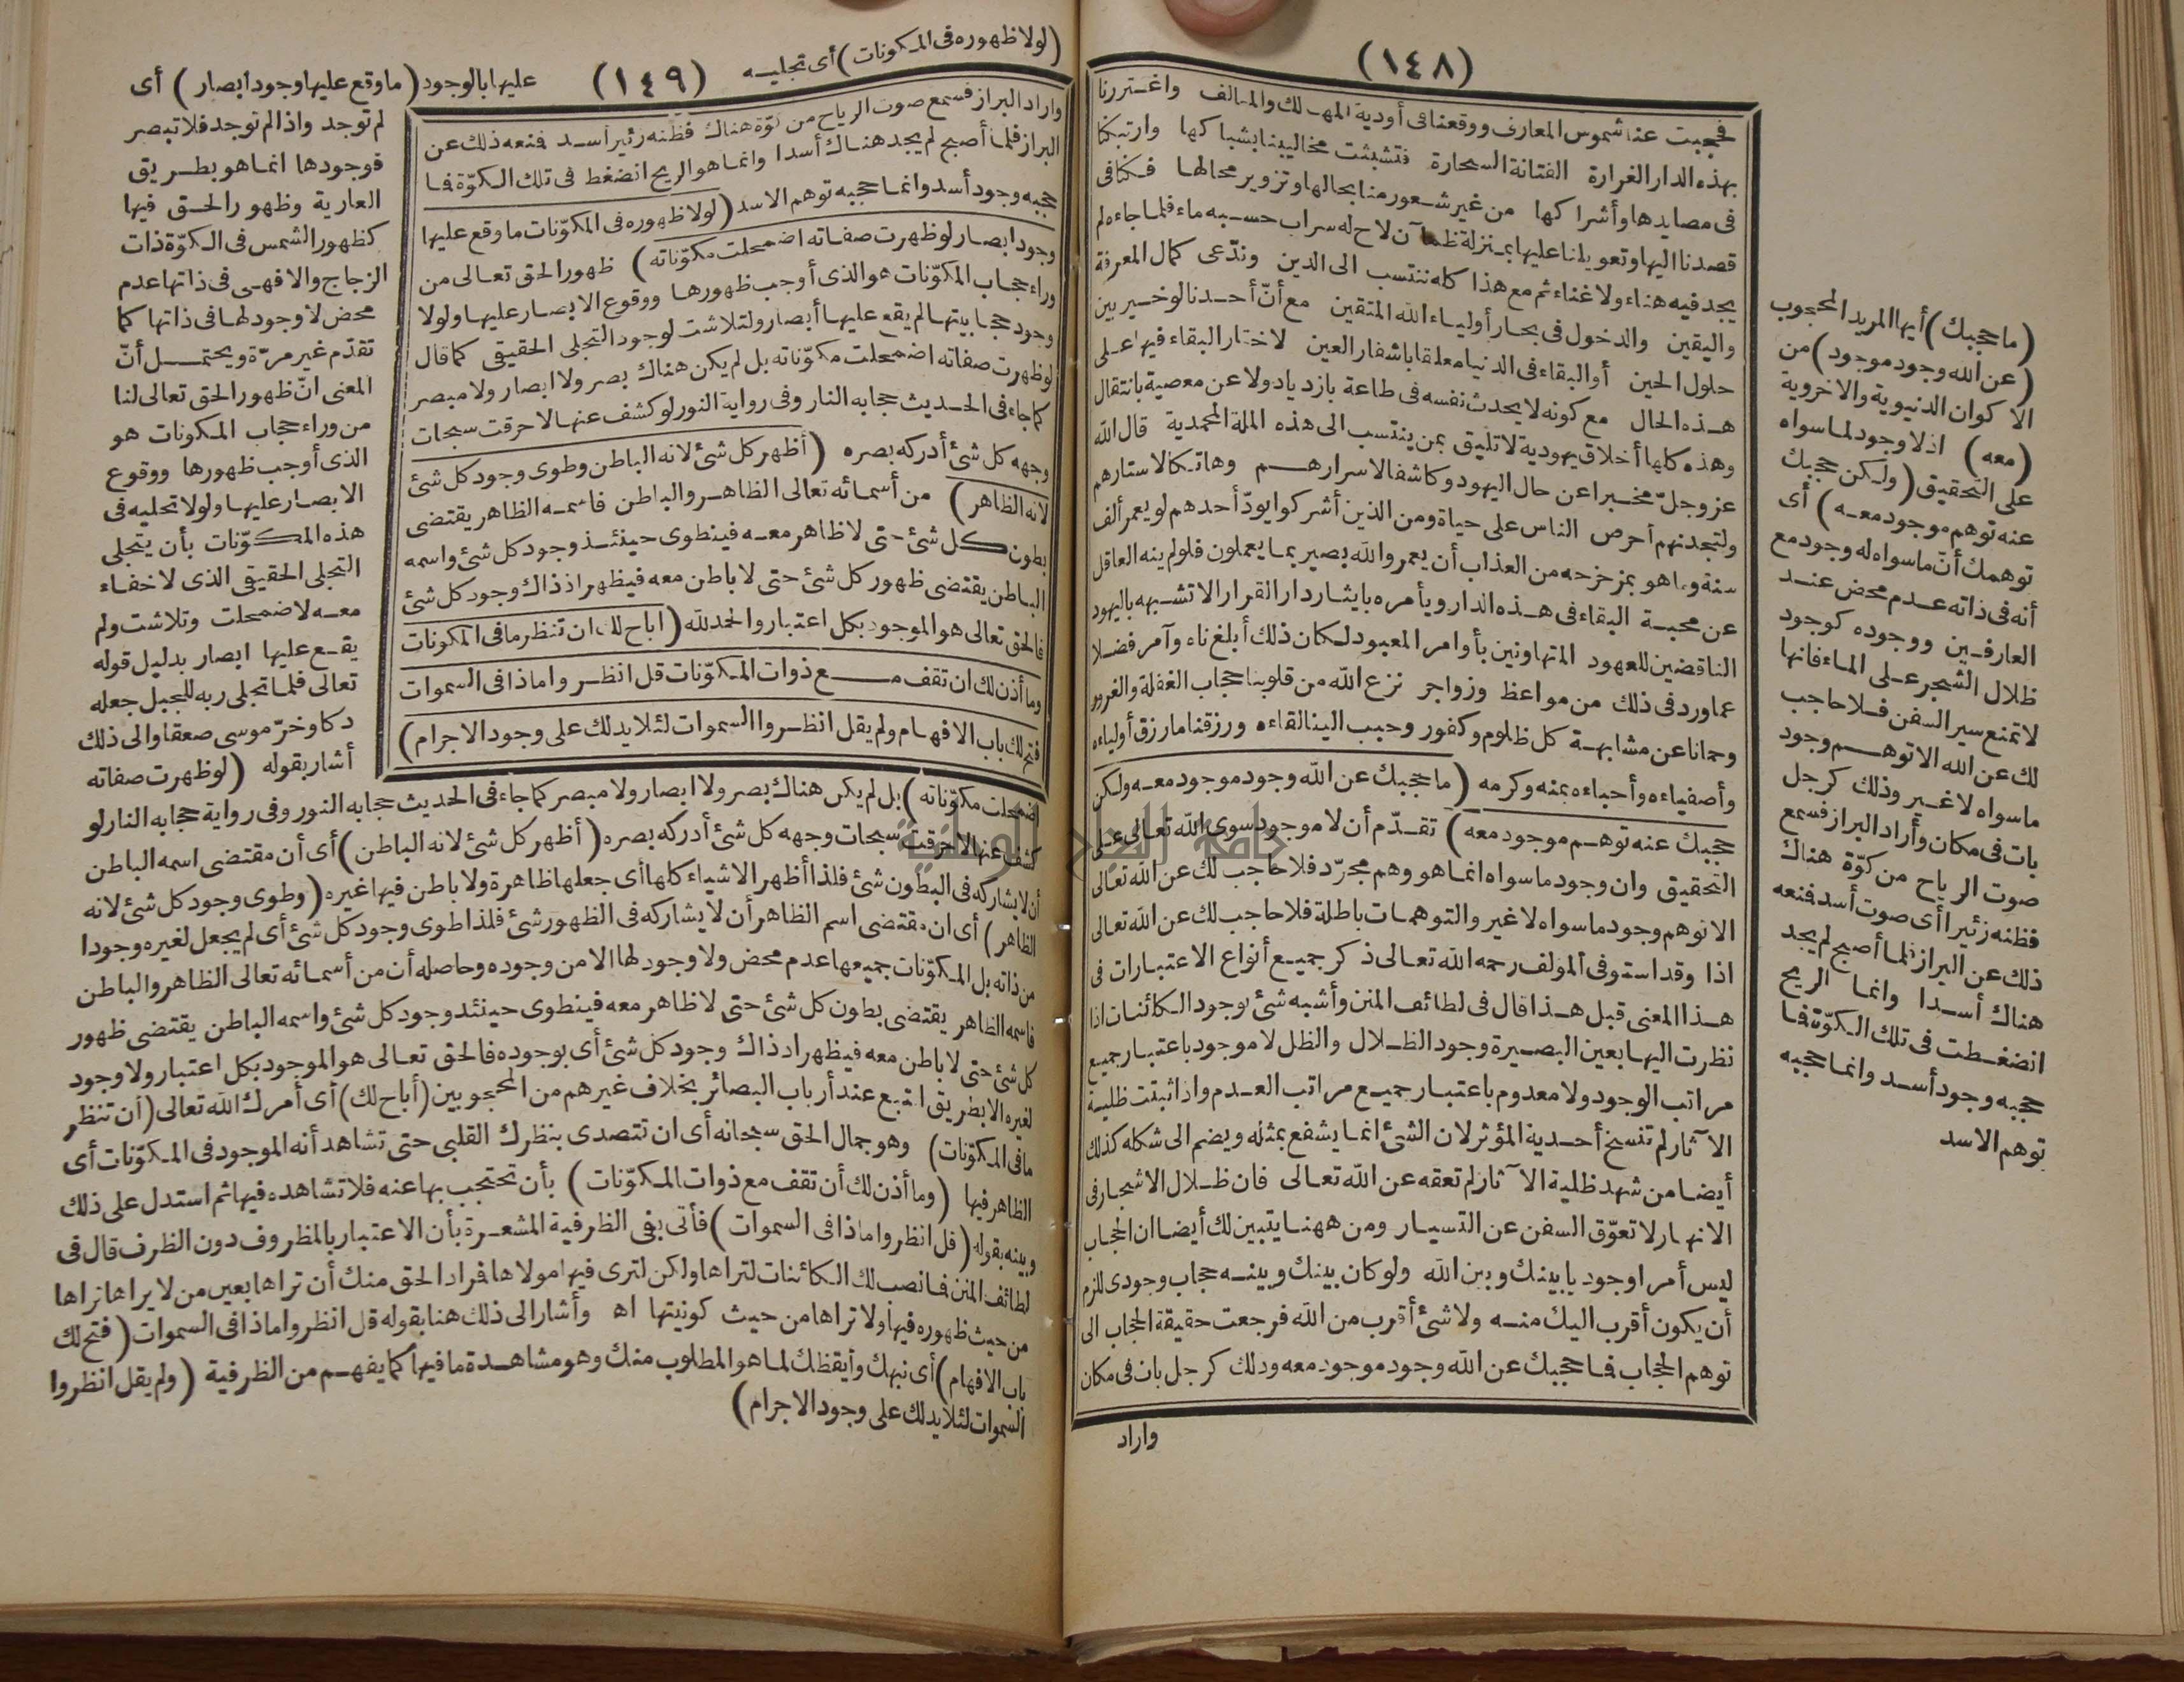 (١٤٨)
فحجبت عنا شموس المعارف ووقعنا فى أودية المهالك والمتالف واغتررنا
بهذه الدار الغرارة الفتانة السحارة فتشبثت مخاليبنا بشباكها وارتبكنا
فى مصايدها وأشراكها من غير شعور منا بحالها وتزوير محالها فكنا فى
قصدنا اليها وتعويلنا عليها بمنزلة ظمآن لاح له سراب حسبه ماء فلما جاءه لم
يجد فيه هناء ولا غناء ثم مع هذا كله ننتسب الى الدين وندّعى كمال المعرفة
واليقين والدخول فى بحار أولياء الله المتقين مع أنّ أحدنا لو خير بين
حلول الحين أو البقاء فى الدنيا معلقا باشفار العين لاختار البقاء فيها على
هذه الحال مع كونه لا يحدث نفسه فى طاعة بازدياد ولا عن معصية بانتقال
وهذه كلها أخلاق يهودية لا تليق بمن ينتسب الى هذه الملة المحمدية قال الله
عز وجلّ مخبرا عن حال اليهود وكاشفا لاسرارهم وهاتكا لاستارهم
ولتجدنهم أحرص الناس على حياة ومن الذين أشركوا يودّ أحدهم لو يعمر ألف
سنة وما هو بمزحزحه من العذاب أن يعمر والله بصير بما يعملون فلو لم ينه العاقل
عن محبة البقاء فى هذه الدار ويأمره بايثار دار القرار الا تشبهه باليهود
الناقضين للعهود المتهاونين بأوامر المعبود لكان ذلك أبلغ ناه وآمر فضلا
عما ورد فى ذلك من مواعظ وزواجر نزع الله من قلوبنا حجاب الغفلة والغرور
وحمانا عن مشابهة كل ظلوم وكفور وحبب الينا لقاءه ورزقنا ما رزق أولياءه
وأصفياءه وأحباءه بمنه وكرمه (ما حجبك عن الله وجود موجود معه ولكن
حجبك عنه توهم موجود معه) تقدّم أن لا موجود سوى الله تعالى على
التحقيق وان وجود ما سواه انما هو وهم مجرّد فلا حاجب لك عن الله تعالى
الا توهم وجود ما سواه لا غير والتوهمات باطلة فلا حاجب لك عن الله تعالى
اذا وقد استوفى المؤلف رحمه الله تعالى ذكر جميع أنواع الاعتبارات فى
هذا المعنى قبل هذا قال فى لطائف المنن وأشبه شئ بوجود الكائنات اذا
نظرت اليها بعين البصيرة وجود الظلال والظل لا موجود باعتبار جميع
مراتب الوجود ولا معدوم باعتبار جميع مراتب العدم واذا ثبتت ظلية
الآثار لم تنسخ أحدية المؤثر لان الشئ انما يشفع بمثله ويضم الى شكله كذلك
أيضا من شهد ظلية الآثار لم تعقه عن الله تعالى فان ظلال الاشجار فى
الانهار لا تعوّق السفن عن التسيار ومن ههنا يتبين لك أيضا ان الحجاب
ليس أمرا وجوديا بينك وبين الله ولو كان بينك وبينه حجاب وجودى للزم
أن يكون أقرب اليك منه ولا شئ أقرب من الله فرجعت حقيقة الحجاب الى
توهم الحجاب فما حجبك عن الله وجود موجود معه وذلك كرجل بات فى مكان
واراد
(ما حجبك) أيها المريد المحجوب
(عن الله وجود موجود) من
الاكوان الدنيوية والاخروية
(معه) اذ لا وجود لما سواه
على التحقيق (ولكن حجبك
عنه توهم موجود معه) أى
توهمك أنّ ما سواه له وجود مع
أنه فى ذاته عدم محض عند
العارفين ووجوده كوجود
ظلال الشجر على الماء فانها
لا تمنع سير السفن فلا حاجب
لك عن الله الا توهم وجود
ما سواه لا غير وذلك كرجل
بات فى مكان وأراد البراز فسمع
صوت الرياح من كوّة هناك
فظنه زئيرا أى صوت أسد فمنعه
ذلك عن البراز فلما أصبح لم يجد
هناك أسدا وانما الريح
انضغطت فى تلك الكوّة فما
حجبه وجود أسد وانما حجبه
توهم الاسد
(لولا ظهوره فى المكونات) أى تجليه
(١٤٩)
عليها بالوجود (ما وقع عليها وجود ابصار) أى
لم توجد واذا لم توجد فلا تبصر
فوجودها انما هو بطريق
العارية وظهور الحق فيها
كظهور الشمس فى الكوّة ذات
الزجاج والا فهى فى ذاتها عدم
محض لا وجود لها فى ذاتها كما
تقدّم غير مرّة ويحتمل أنّ
المعنى انّ ظهور الحق تعالى لنا
من وراء حجاب المكونات هو
الذى أوجب ظهورها ووقوع
الابصار عليها ولولا تجليه فى
هذه المكوّنات بأن يتجلى
التجلى الحقيقى الذى لا خفاء
معه لاضمحلت وتلاشت ولم
يقع عليها ابصار بدليل قوله
تعالى فلما تجلى ربه للجبل جعله
دكا وخرّ موسى صعقا والى ذلك
أشار بقوله (لو ظهرت صفاته
واراد البراز فسمع صوت الرياح من كوّة هناك فظنه زئير أسد فمنعه ذلك عن
البراز فلما أصبح لم يجد هناك أسدا وانما هو الريح انضغط فى تلك الكوّة فما
حجبه وجود أسد وانما حجبه توهم الاسد (لولا ظهوره فى المكوّنات ما وقع عليها
وجود ابصار لو ظهرت صفاته اضمحلت مكوّناته) ظهور الحق تعالى من
وراء حجاب المكوّنات هو الذى أوجب ظهورها ووقوع الابصار عليها ولولا
وجود حجابيتها لم يقع عليها أبصار ولتلاشت لوجود التجلى الحقيقى كما قال
لو ظهرت صفاته اضمحلت مكوّناته بل لم يكن هناك بصر ولا ابصار ولا مبصر
كما جاء فى الحديث حجابه النار وفى رواية النور لو كشف عنها لاحرقت سبحات
وجهه كل شئ أدركه بصره (أظهر كل شئ لانه الباطن وطوى وجود كل شئ
لانه الظاهر) من أسمائه تعالى الظاهر والباطن فاسمه الظاهر يقتضى
بطون كل شئ حتى لا ظاهر معه فينطوى حينئذ وجود كل شئ واسمه
الباطن يقتضى ظهور كل شئ حتى لا باطن معه فيظهر اذ ذاك وجود كل شئ
فالحق تعالى هو الموجود بكل اعتبار والحمد لله (اباح لك ان تنظر ما فى المكونات
وما أذن لك ان تقف مع ذوات المكوّنات قل انظروا ماذا فى السموات
فتح لك باب الافهام ولم يقل انظروا السموات لئلا يدلك على وجود الاجرام)
اضمحلت مكوّناته) بل لم يكن هناك بصر ولا ابصار ولا مبصر كما جاء فى الحديث حجابه النور وفى رواية حجابه النار لو
كشف عنها لاحرقت سبحات وجهه كل شئ أدركه بصره (أظهر كل شئ لانه الباطن) أى أن مقتضى اسمه الباطن
أن لا يشاركه فى البطون شئ فلذا أظهر الاشياء كلها أى جعلها ظاهرة ولا باطن فيها غيره (وطوى وجود كل شئ لانه
الظاهر) أى ان مقتضى اسم الظاهر أن لا يشاركه فى الظهور شئ فلذا طوى وجود كل شئ أى لم يجعل لغيره وجودا
من ذاته بل المكوّنات جميعها عدم محض ولا وجود لها الا من وجوده وحاصله أن من أسمائه تعالى الظاهر والباطن
فاسمه الظاهر يقتضى بطون كل شئ حتى لا ظاهر معه فينطوى حينئذ وجود كل شئ واسمه الباطن يقتضى ظهور
كل شئ حتى لا باطن معه فيظهر اذ ذاك وجود كل شئ أى بوجوده فالحق تعالى هو الموجود بكل اعتبار ولا وجود
لغيره الا بطريق التبع عند أرباب البصائر بخلاف غيرهم من المحجوبين (أباح لك) أى أمرك الله تعالى (ان تنظر
ما فى المكوّنات) وهو جمال الحق سبحانه أى ان تتصدى بنظرك القلبى حتى تشاهد أنه الموجود فى المكوّنات أى
الظاهر فيها (وما أذن لك أن تقف مع ذوات المكوّنات) بأن تحتجب بها عنه فلا تشاهده فيها ثم استدل على ذلك
وبينه بقوله (قل انظروا ماذا فى السموات) فأتى بفى الظرفية المشعرة بأن الاعتبار بالمظروف دون الظرف قال فى
لطائف المنن فما نصب لك الكائنات لتراها ولكن لترى فيها مولاها فمراد الحق منك أن تراها بعين من لا يراها تراها
من حيث ظهوره فيها ولا تراها من حيث كونيتها اه وأشار الى ذلك هنا بقوله قل انظروا ماذا فى السموات (فتح لك
باب الافهام) أى نبهك وأيقظك لما هو المطلوب منك وهو مشاهدة ما فيها كما يفهم من الظرفية (ولم يقل انظروا
السموات لئلا يدلك على وجود الاجرام)
جامعة النجاح الوطنية